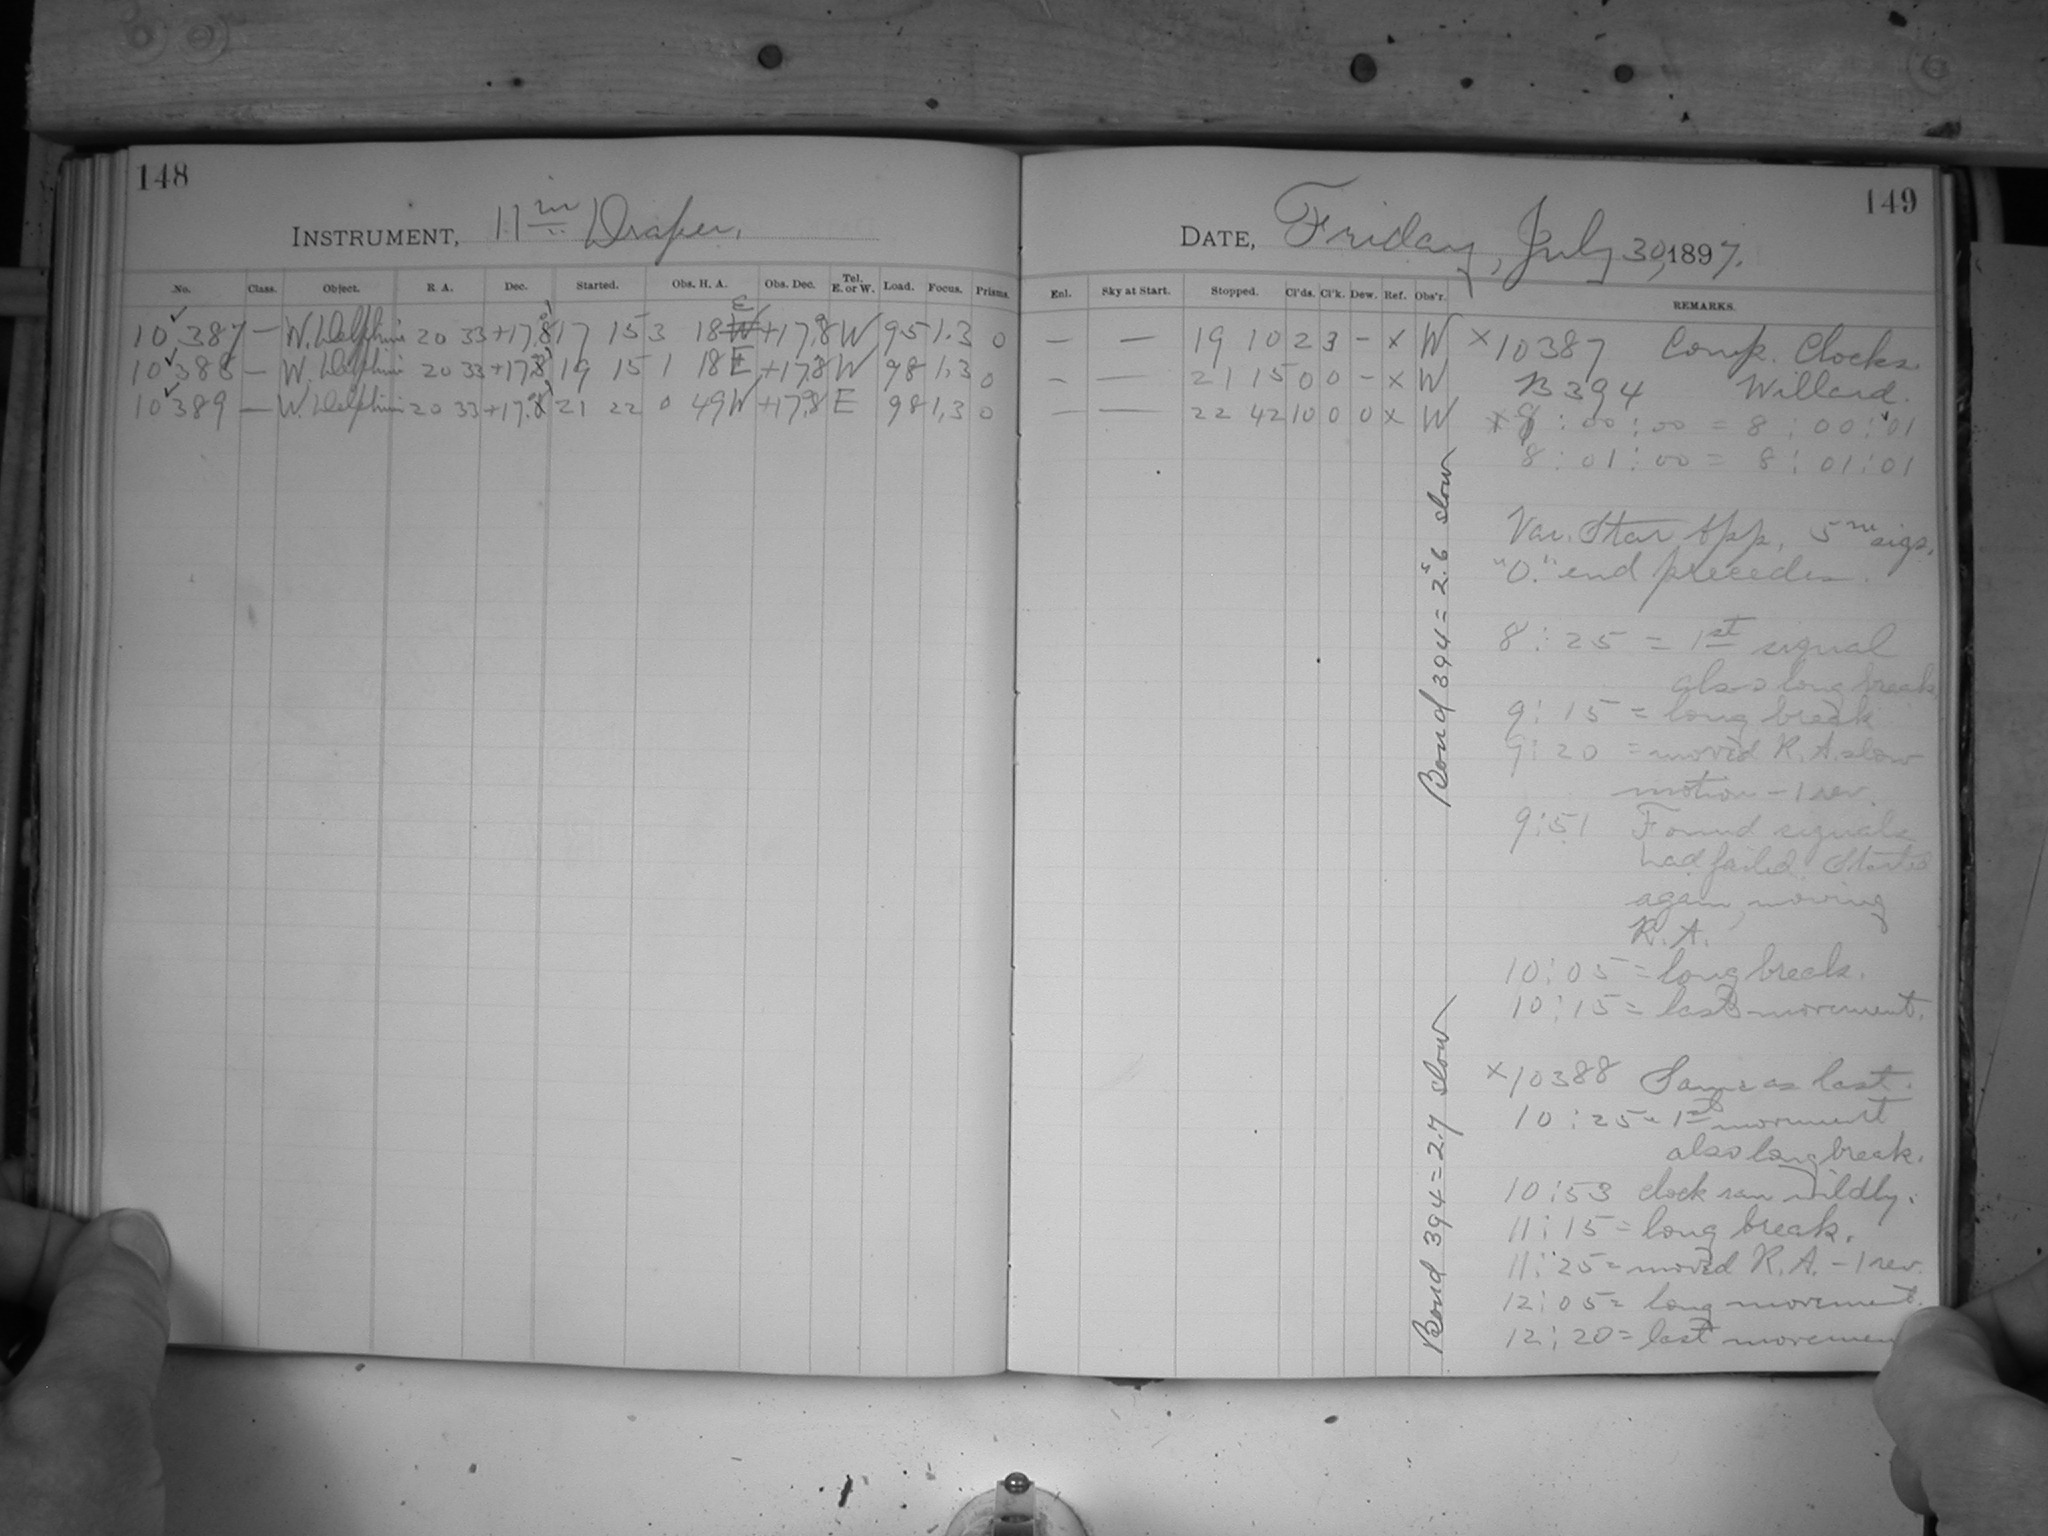 148
INSTRUMENT, 11 in Draper.
No. Class. Object. R. A. Dec. Started. Obs. H. A. Obs. Dec. Tel. E. or W. Load. Focus. Prisms.
10387 — W. Delphini 20 33 +17.8 17 15 3 18 E +17.8 W 95 1.3 0
10388 — W. Delphini 20 33 +17.8 19 15 1 18 E +17.8 W 98 1.3 0
10389 — W. Delphini 20 33 +17.8 21 22 0 49 W +17.8 E 98 1.3 0
149
DATE, Friday, July 30, 1897.
Enl. Sky at Start. Stopped. Cl'ds. Cl'k. Dew. Ref. Obs'r. REMARKS.
— — 19 10 2 3 - x W
— — 21 15 0 0 - x W
— — 22 42 10 0 0 x W
x 10387 Comp. Clocks.
B 394 Willard.
x 8:00:00 = 8:00:01
8:01:00 = 8:01:01
Var. Star App. 5m sigs.
"O." end precedes.
8:25 = 1st signal
also long break
9:15 = long break
9:20 = moved R. A. slow
motion - 1 rev.
9:51 Found signals
had failed. Started
again, moving
R. A.
10:05 = long break.
10:15 = last movement.
x 10388 Same as last.
10:25 = 1st movement
also long break.
10:53 clock ran wildly.
11:15 = long break.
11:25 = moved R. A. - 1 rev.
12:05 = long movement.
12:20 = last movemen
Bond 394 = 2.s6 slow
Bond 394 = 2.7 slow